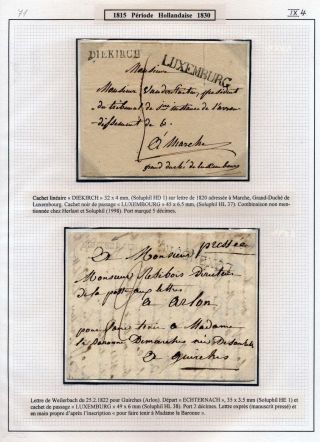 71
1815 Période Hollandaise 1830
IX 4
DIEKIRCH
LUXEMBURG
Monsieur
Monsieur président
du tribunal de 1ère instance de l'arron
dissement de &.
à Marche
grand duché de Luxembourg
Cachet linéaire « DIEKIRCH » 32 x 4 mm. (Soluphil HD 1) sur lettre de 1820 adressée à Marche, Grand-Duché de
Luxembourg. Cachet noir de passage « LUXEMBOURG » 43 x 6.5 mm, (Soluphil HL 37). Combinaison non men-
tionnée chez Herlant et Soluphil (1998). Port marqué 5 décimes.
A Monsieur pressée
Monsieur Directeur
de la poste aux lettres
à Arlon
pour faire tenir à Madame
la baronne
à Guirches
Lettre de Weilerbach du 25.2.1822 pour Guirches (Arlon). Départ « ECHTERNACH », 35 x 3.5 mm (Soluphil HE 1) et
cachet de passage « LUXEMBURG » 49 x 6 mm (Soluphil HL 38). Port 7 décimes. Lettre exprès (manuscrit pressé) et
en main propre d'après l'inscription « pour faire tenir à Madame la Baronne ».